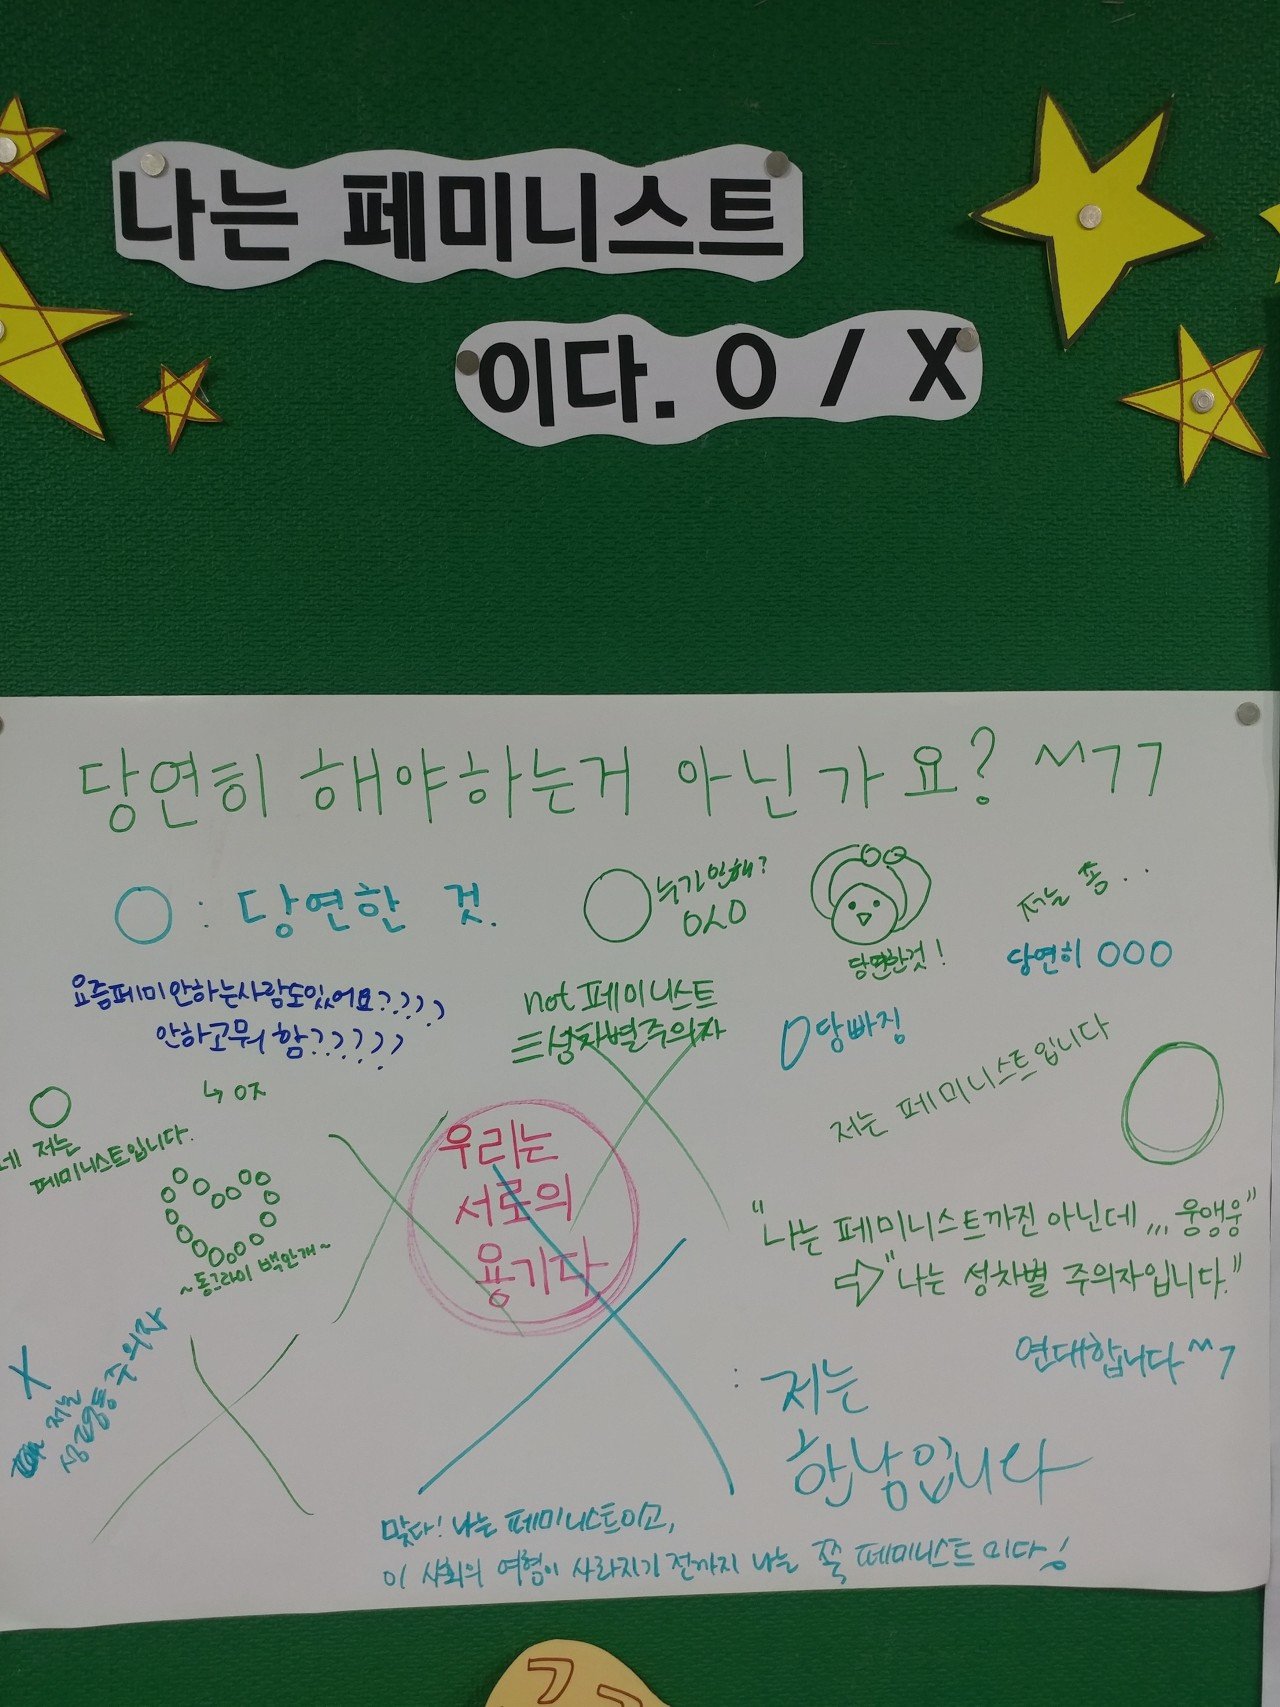 나는 페미니스트
이다. O / X
당연히 해야하는거 아닌가요? ^^77
○ : 당연한 것.
○ 누가안해?
ㅇㅅㅇ
당연한것!
저는 퐁..
당연히 OOO
요즘페미안하는사람도있어요????
안하고뭐함?????
↳ ㅇㅈ
not 페미니스트
=성차별주의자
O 당빠징
저는 페미니스트입니다
○
○
네 저는
페미니스트입니다.
~동그라미 백만개~
우리는
서로의
용기다
"나는 페미니스트까진 아닌데,,, 웅앵웅"
⇨ "나는 성차별 주의자입니다."
연대합니다 ^^7
X
저는
성평등주의자
: 저는
한남입니다
맞다! 나는 페미니스트이고,
이 사회의 여혐이 사라지기 전까지 나는 쭉 페미니스트이다!